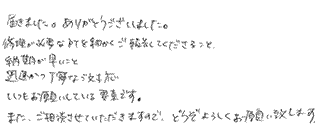 届きました。ありがとうございました。
修理が必要な所を細かくご報告してくださること、
納期が早いこと
迅速かつ丁寧なご対応
いつもお願いしている要素です。
また、ご相談させていただきますので、どうぞよろしくお願い致します。